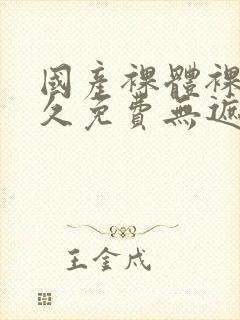 國產裸體裸
久免費無遮
王金戍